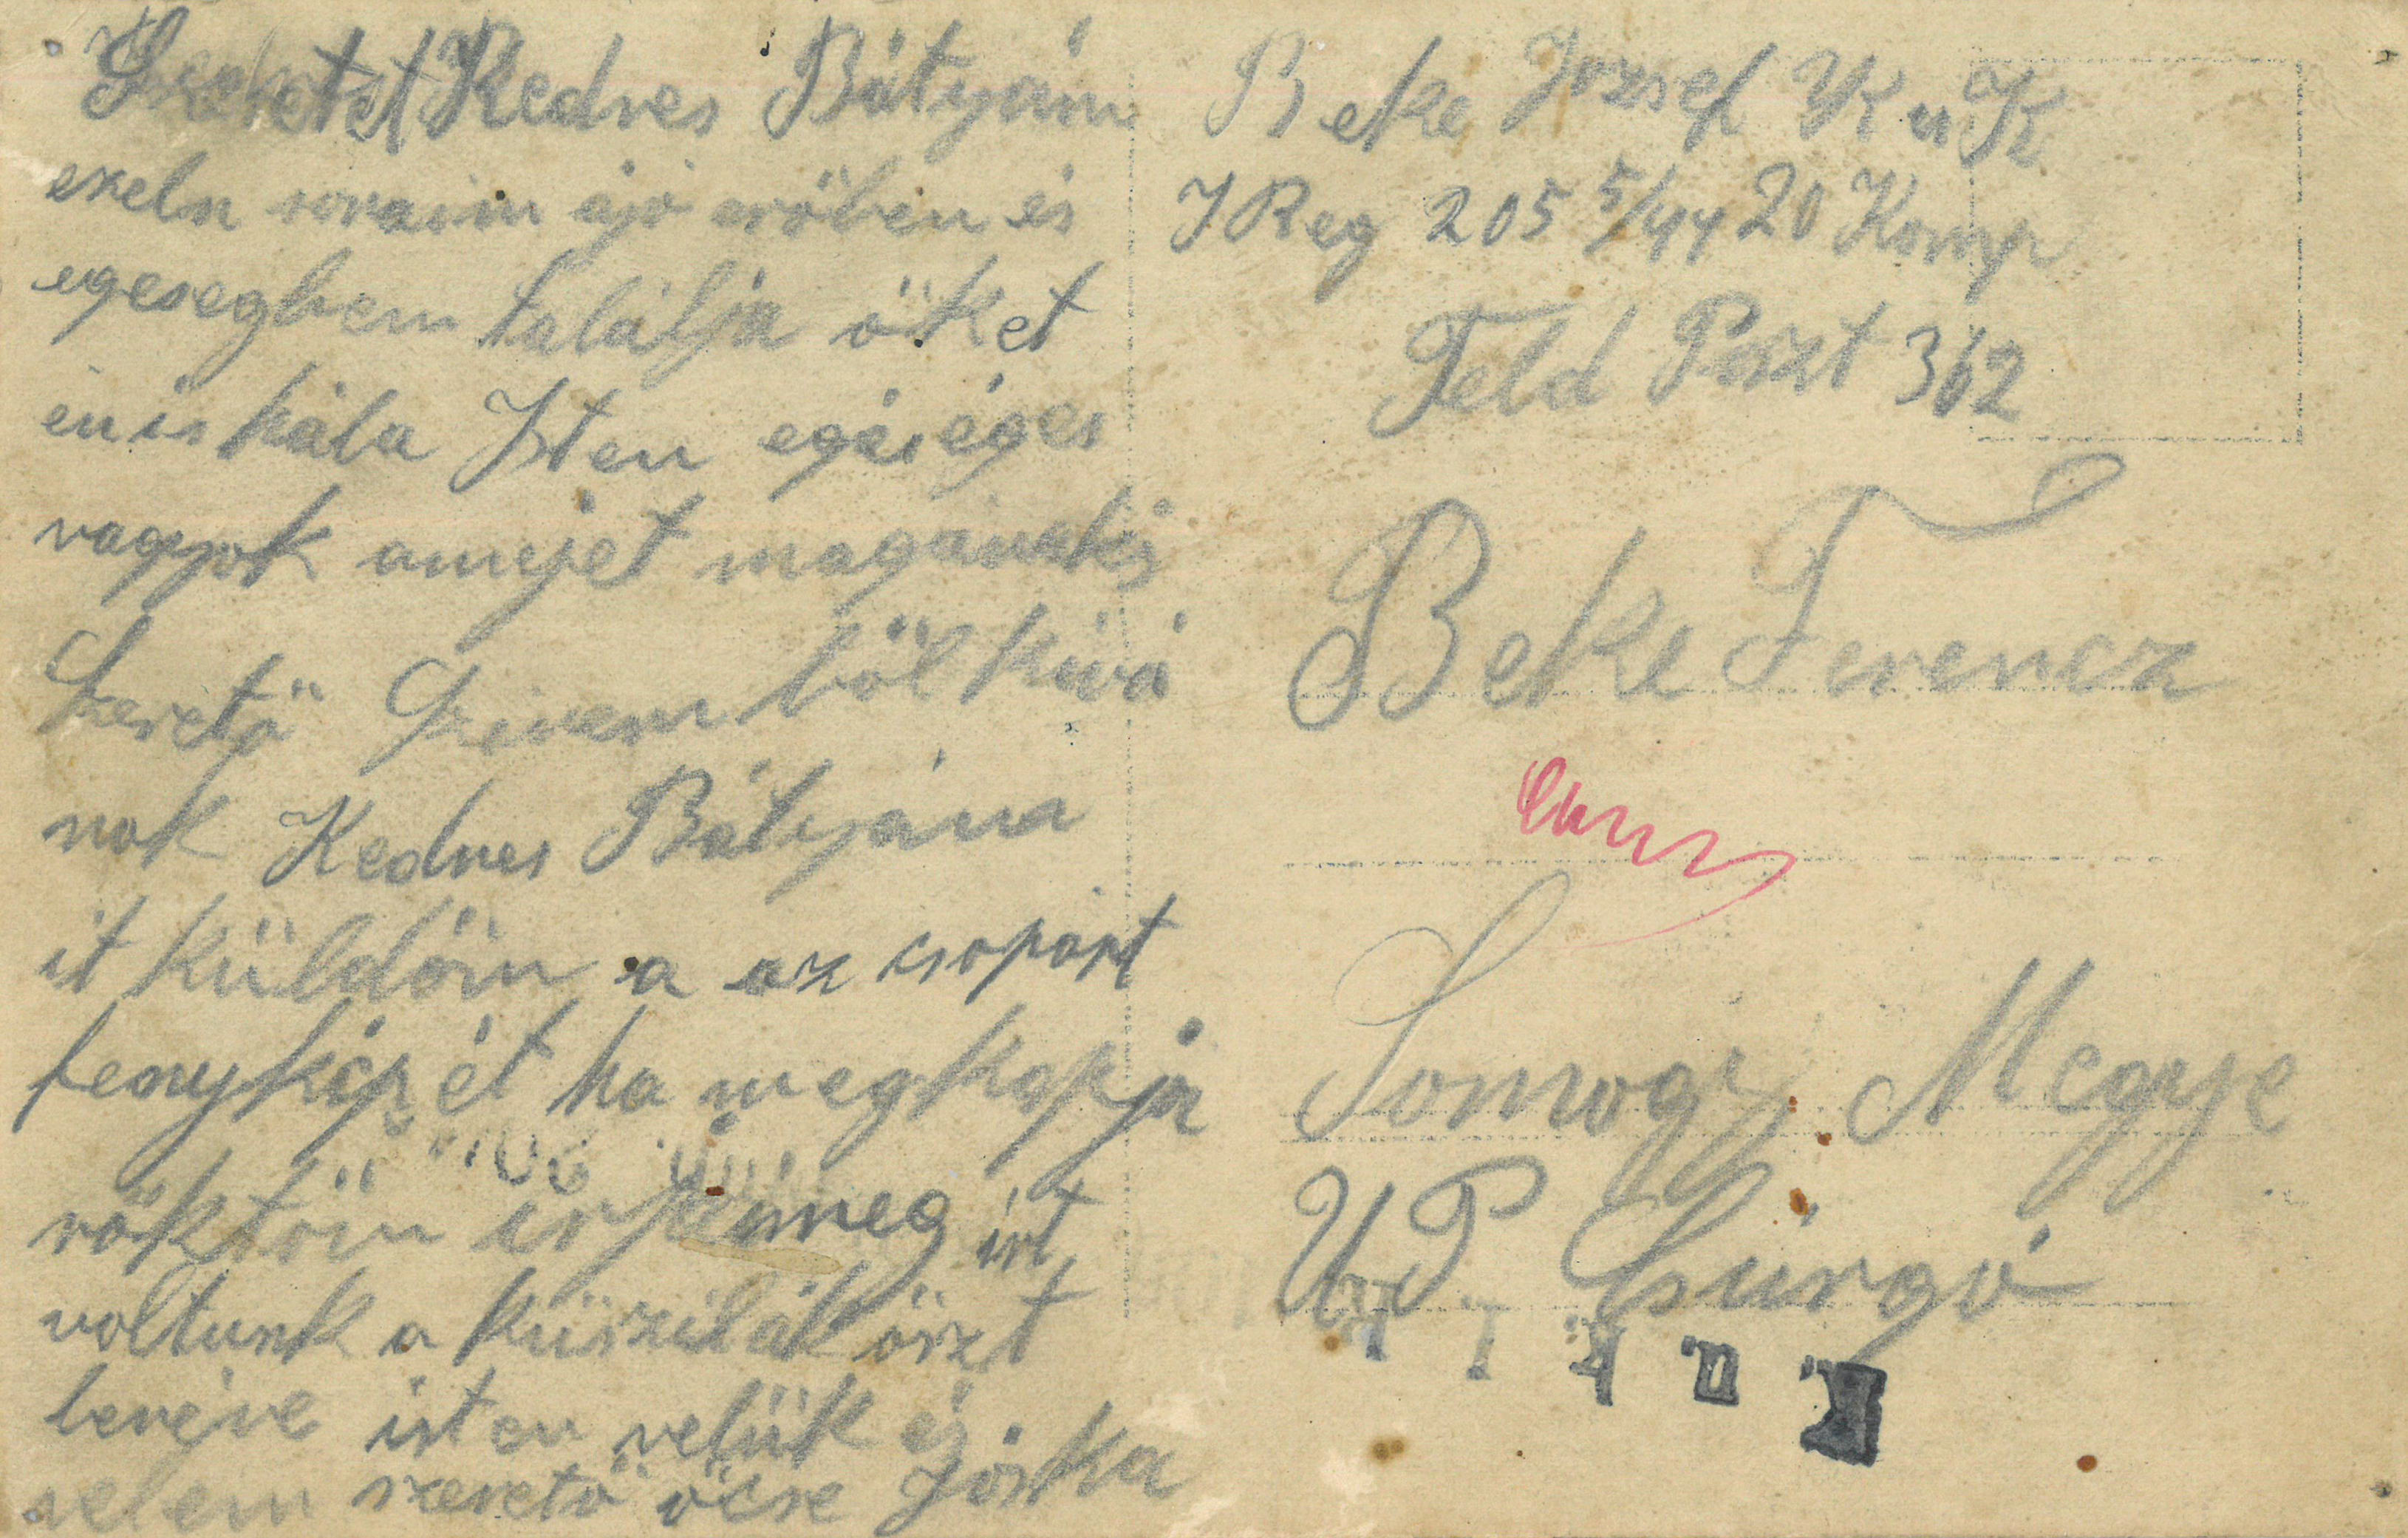 Szeretet Kedves Bátyám
ezeln soraim ajó erőben és
egesegbem talalja öket
én is hála Isten egéséges
vagyok amejet maganakis
Szerető Szivem ből kivá
nok Kedves Bátyáma
it küldöm a az csoport
fenykép ét ha megkapja
röktöm irja meg itt
voltunk a
isten velük és
velem szerető öcse Jóska
Beke Jozsef K u K
I Reg 205 5/44 20 Komp
Feld Poszt 362
Beke Ferencz
Somogy Megye
U P Csurgó